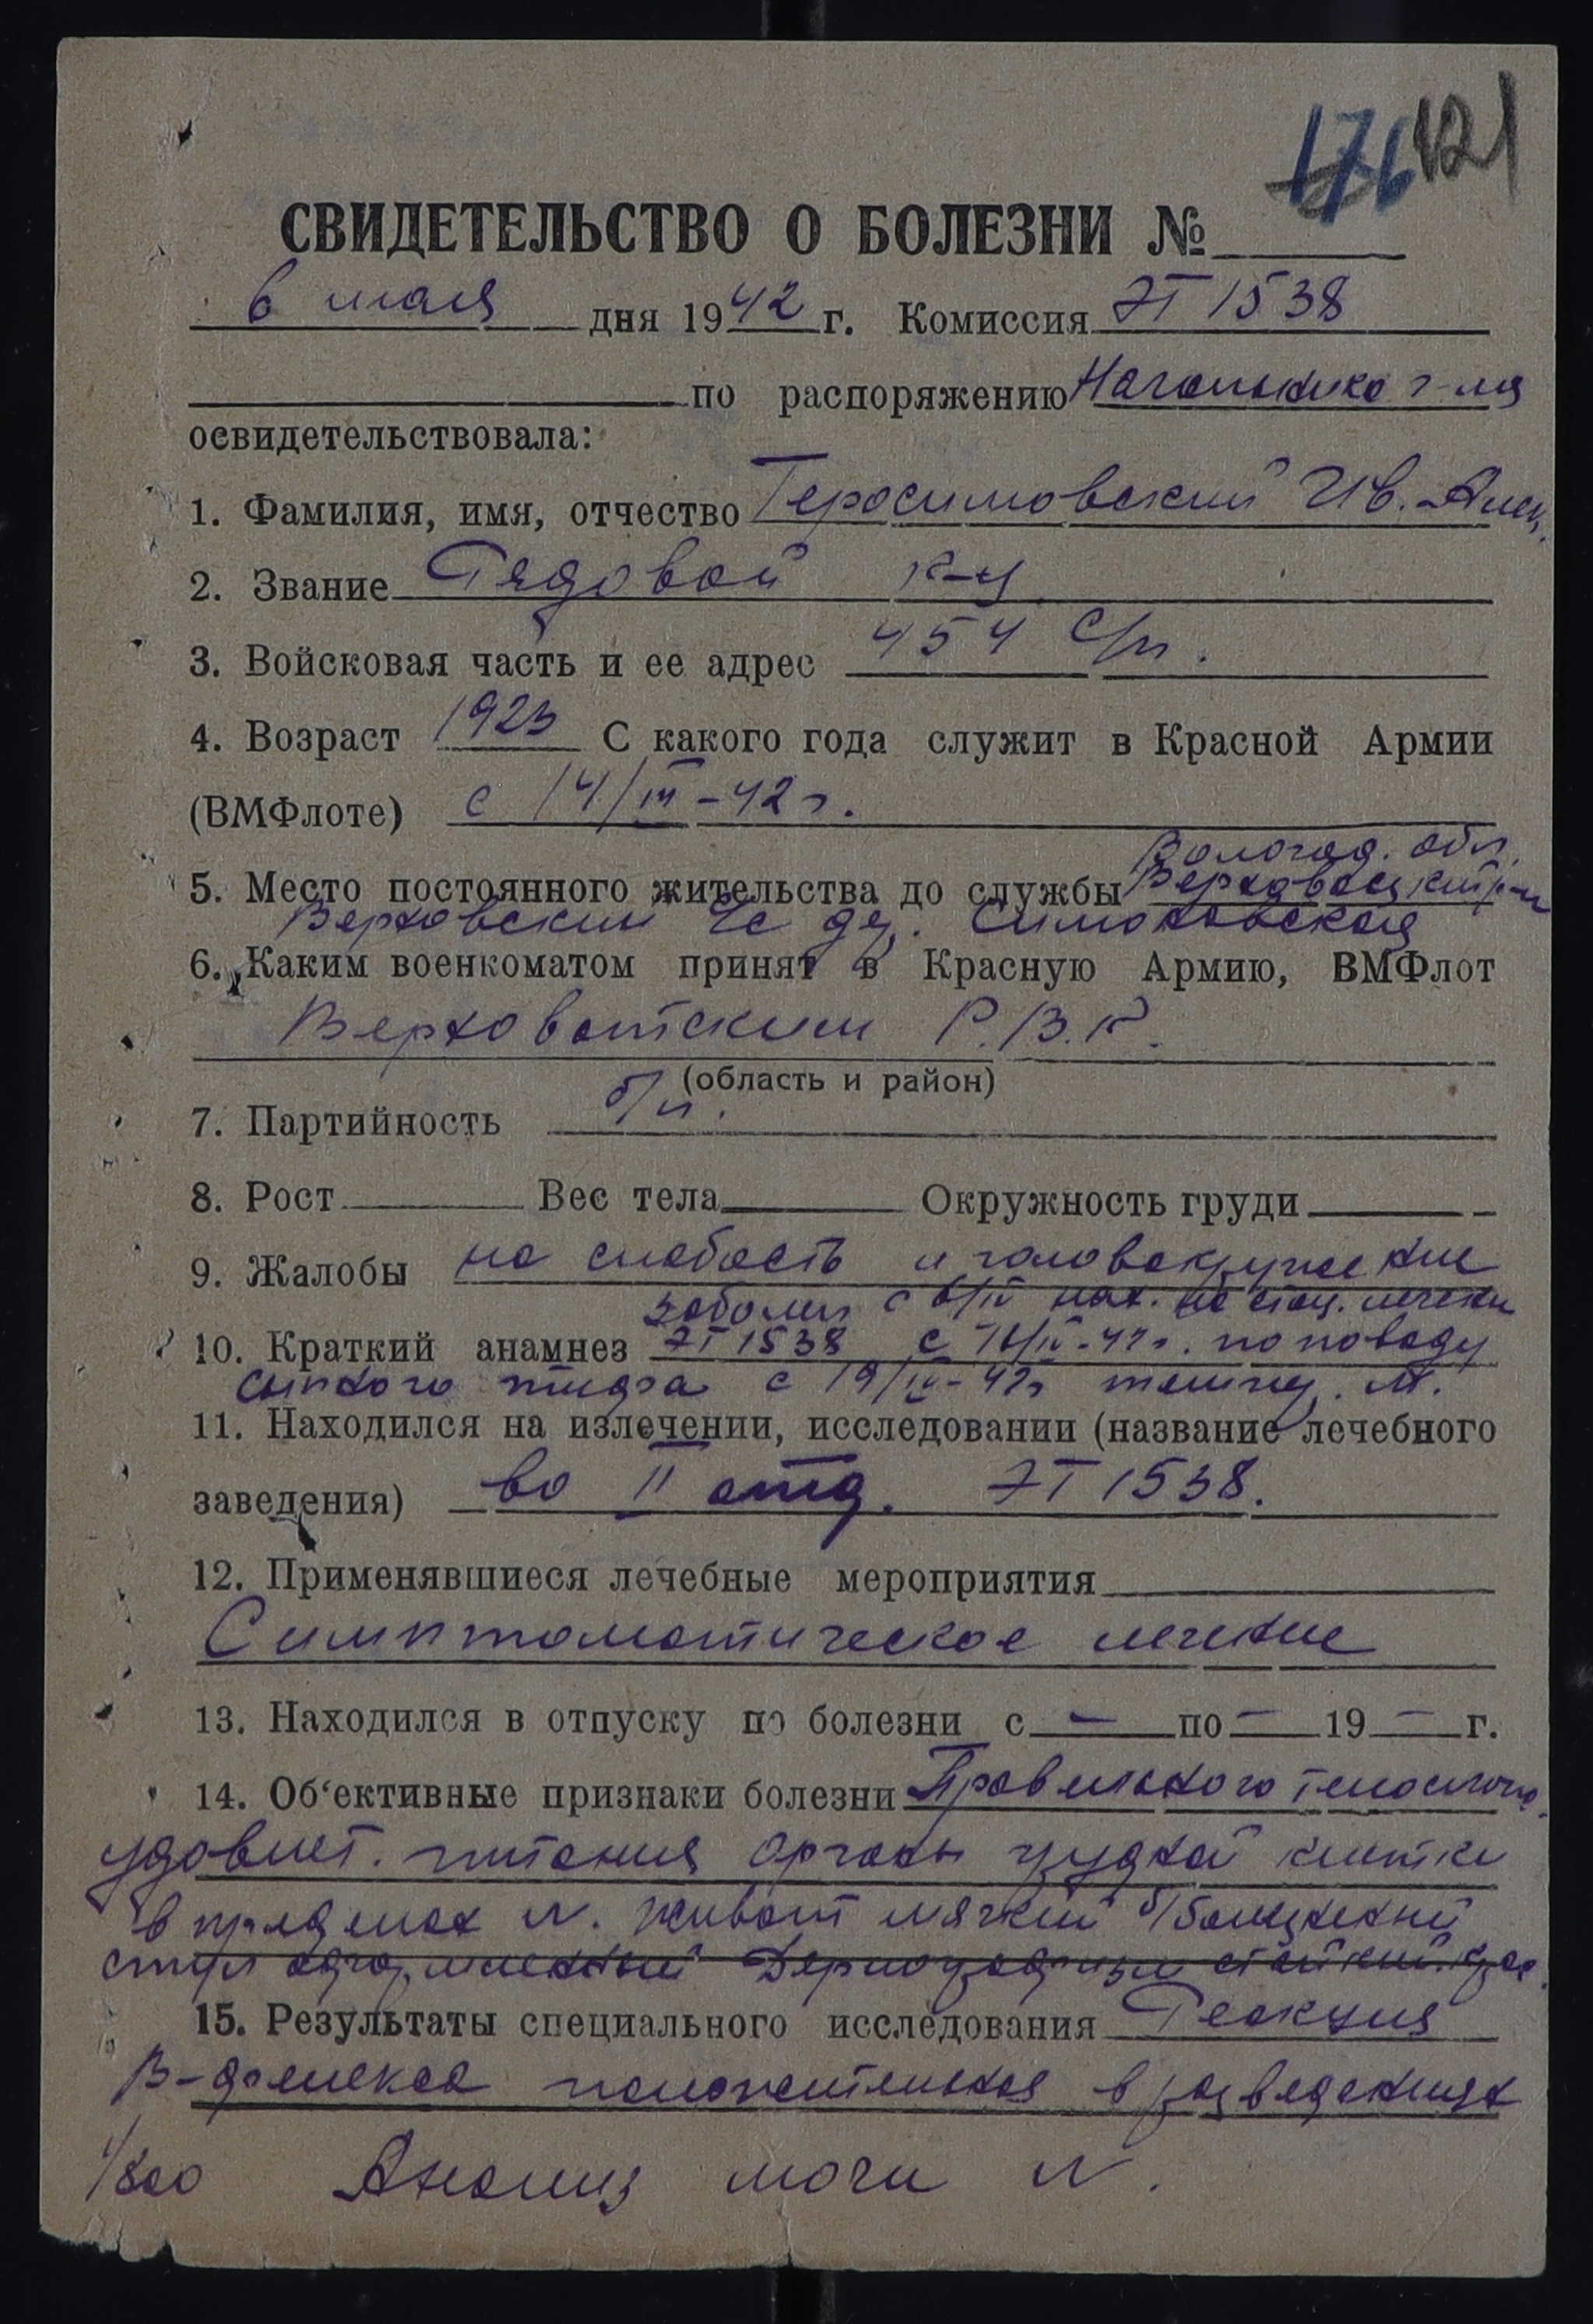 176 121
СВИДЕТЕЛЬСТВО О БОЛЕЗНИ №
6 мая дня 1942 г. Комиссия ЭГ 1538
по распоряжению Начальника г-ля
освидетельствовала:
1. Фамилия, имя, отчество Герасимовский Ив. Алек.
2. Звание Рядовой к-ц
3. Войсковая часть и ее адрес 454 с/п.
4. Возраст 1923 С какого года служит в Красной Армии
(ВМФлоте) с 14/III-42 г.
Волог.ад. обл.
5. Место постоянного жительства до службы Верховажский р-н
Верховский с/с дер. Симоновская
6. Каким военкоматом принят в Красную Армию, ВМФлот
Верховажским Р.В.К.
(область и район)
7. Партийность б/п.
8. Рост Вес тела Окружность груди
9. Жалобы на слабость и головокружение
заболел с 6/IV нах. на стац. лечении
10. Краткий анамнез ЭГ 1538 с 16/IV-42г. по поводу
сыпного тифа с 19/IV-42г
11. Находился на излечении, исследовании (название лечебного
заведения) во II отд. ЭГ 1538.
12. Применявшиеся лечебные мероприятия
Симптоматическое лечение
13. Находился в отпуску по болезни с – по – 19 – г.
14. Об'ективные признаки болезни Правильного телослож.
удовлет. питания Органы грудной клетки
в пределах N. Живот мягкий б/болезненный
стул оформленный Дермографизм стойкий крас.
15. Результаты специального исследования Реакция
В-Феликса положительная в разведениях
1/800 Анализ мочи N.